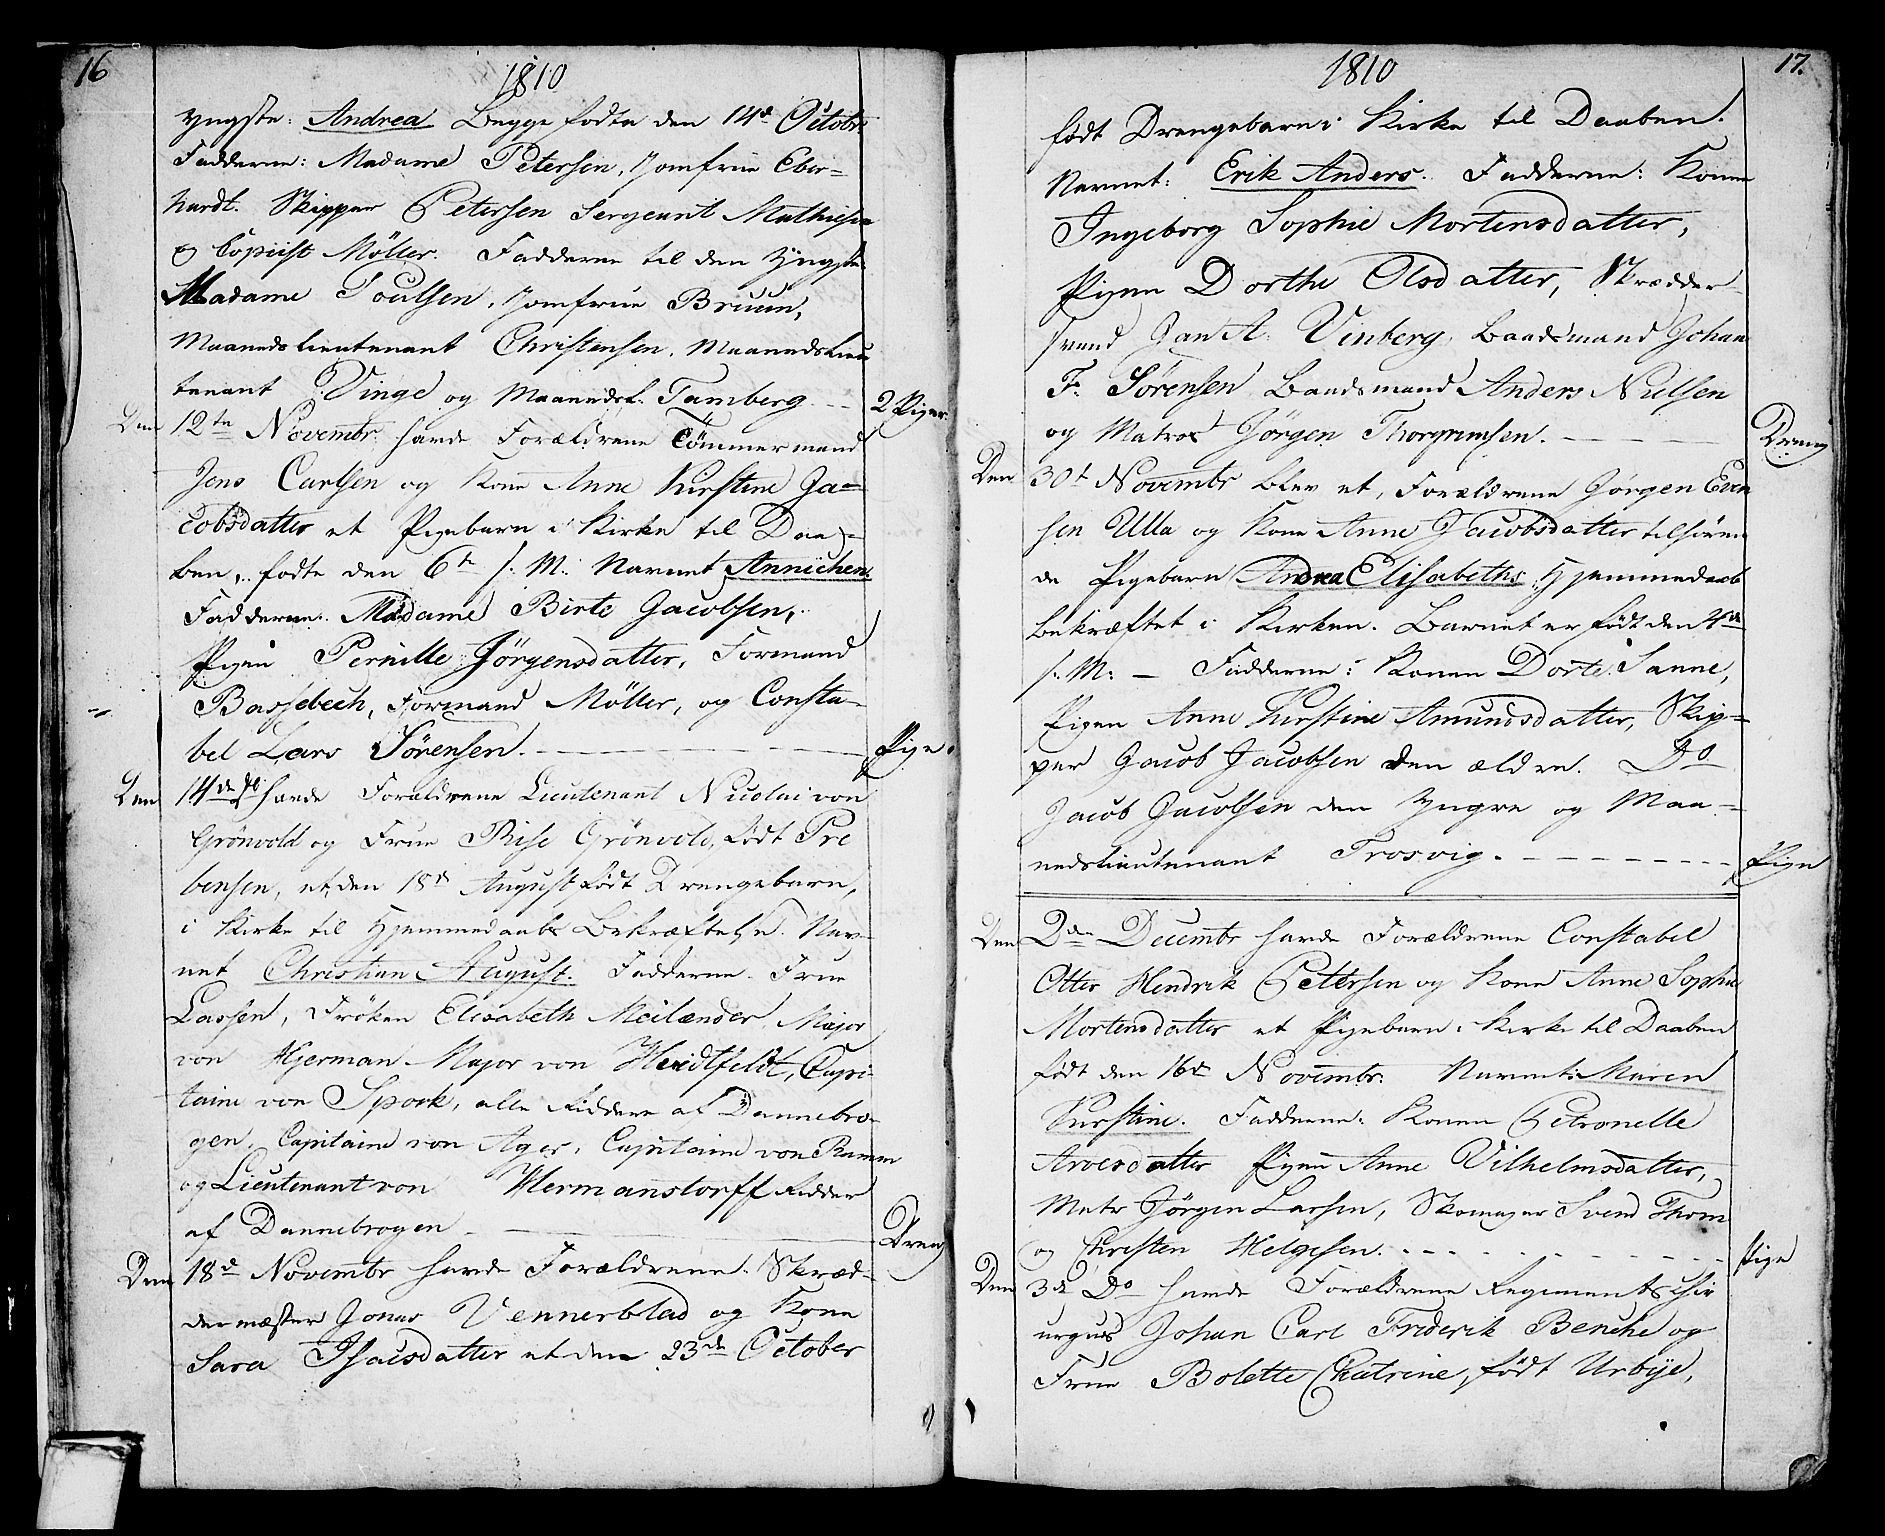 16
1810
yngste: Andrea Begge fødte den 14d Octobr
Fadderne: Madame Petersen, Jomfrue Eber-
hardt. Skipper Petersen Sergeant Mathiesen
og Copiist Möller. Fadderne til den Yngste:
Madame Poulsen, Jomfrue Bruun,
Maanedslieutenant Christensen, Maanedslieu
tenant Vinge og Maanedsl. Tamberg — 2 Piger
Den 12te Novembr. havde Forældrene Tömmermand
Jens Carlsen og Kone Anne Kirstine Ja-
cobsdatter et Pigebarn i Kirke til Daa-
ben, fødte den 6te s. M. Navnet Annichen.
Fadderne. Madame Birte Jacobsen,
Pigen Pernille Jörgensdatter, Formand
Bassebech, Formand Möller, og Consta-
bel Lars Sörensen. — Pige.
Den 14de Do havde Forældrene Lieutenant Nicolai von
Grönvold og Frue Rise Grönvold, født Pre
bensen, et, den 18d August født Drengebarn,
i Kirke til Hjemmedaabs Bekræftelse. Nav-
net Christian August. Fadderne. Frue
Lassen, Fröken Elisabeth Meilænder, Major
von Hjerman Major von Heidtfeldt, Capi-
taine von Spork, alle Riddere af Dannebro-
gen, Capitaine von Ager, Capitaine von Ramm
og Lieutenant von Hermanstorff Ridder
af Dannebrogen — Dreng
Den 18d Novembr havde Forældrene. Skræd-
dermæster Jonas Vennerblad og Kone
Sara Isacsdatter et den 23de October
1810
17.
født Drengebarn i Kirke til Daaben.
Navnet: Erik Anders. Fadderne: Konen
Ingeborg Sophie Mortensdatter,
Pigen Dorthe Olsdatter, Skrædder-
svend Jan A. Vinberg, Baadsmand Johan
F. Sörensen Baadsmand Anders Nielsen
og Matros Jörgen Thorgrimsen. — Dreng
Den 30t Novembr blev et, Forældrene Jörgen Even
sen Ulla og Kone Anne Jacobsdatter tilhören
de Pigebarn Andrea Elisabeths Hjemmedaab
bekræftet i Kirken. Barnet er født den 4de
s. M: — Fadderne: Konen Dorte Sanne,
Pigen Anne Kirstine Amundsdatter, Skip-
per Jacob Jacobsen den ældre. Do
Jacob Jacobsen den yngre og Maa-
nedslieutenant Trosvig. — Pige
Den 2den Decembr havde Forældrene Constabel
Otter Hendrik Petersen og Kone Anne Sophie
Mortensdatter et Pigebarn i Kirke til Daaben
født den 16de Novembr. Navnet: Maren
Kirstine. Fadderne: Konen Petronelle
Arvesdatter Pigen Anne Vilhelmsdatter,
Matr Jörgen Larsen, Skomager Svend Thom
og Christen Helgesen. — Pige
Den 3de Do havde Forældrene Regimentschir
urgus Johan Carl Friderik Benche og
Frue Bolette Chatrine, født Urbye,